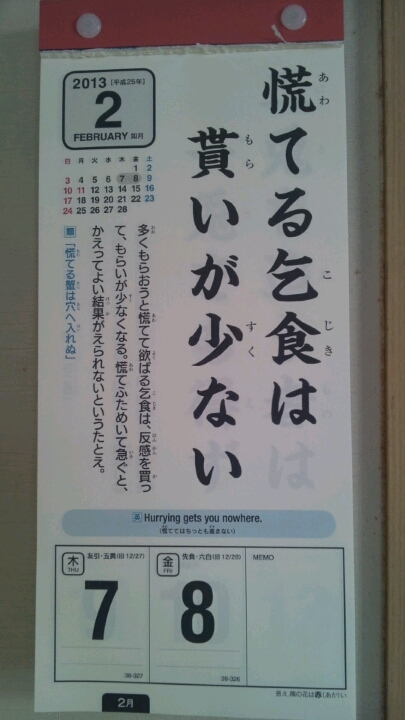 慌てる乞食は
貰いが少ない
2013［平成25年］
2
FEBRUARY 如月
日 月 火 水 木 金 土
1 2
3 4 5 6 7 8 9
10 11 12 13 14 15 16
17 18 19 20 21 22 23
24 25 26 27 28
多くもらおうと慌てて欲ばる乞食は、反感を買っ
て、もらいが少なくなる。慌てふためいて急ぐと、
かえってよい結果がえられないというたとえ。
「慌てる蟹は穴へ入れぬ」
英 Hurrying gets you nowhere.
(慌ててはちっとも着きない)
木 THU
友引・五黄(旧 12/27)
7
38-327
金 FRI
先負・六白(旧 12/28)
8
39-326
MEMO
2月